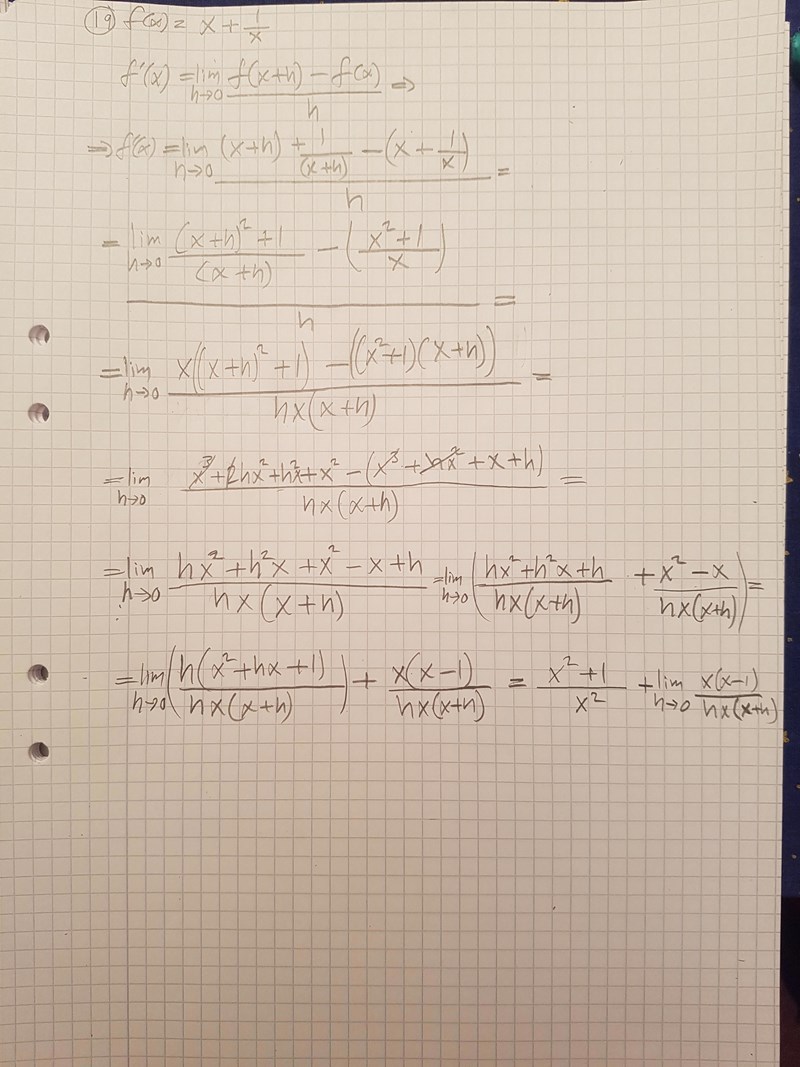 (19) f(x) = x + 1/x
f'(x) = lim h→0 (f(x+h) − f(x))/h ⇒
⇒ f'(x) = lim h→0 ((x+h) + 1/(x+h) − (x + 1/x))/h =
= lim h→0 (((x+h)² + 1)/(x+h) − ((x²+1)/x))/h =
= lim h→0 (x((x+h)² + 1) − ((x²+1)(x+h)))/(hx(x+h)) =
= lim h→0 (x³ + 2hx² + h²x + x² − (x³ + hx² + x + h))/(hx(x+h)) =
= lim h→0 (hx² + h²x + x² − x + h)/(hx(x+h)) = lim h→0 ((hx² + h²x + h)/(hx(x+h)) + (x² − x)/(hx(x+h))) =
= lim h→0 (h(x² + hx + 1)/(hx(x+h))) + x(x−1)/(hx(x+h)) = (x² + 1)/x² + lim h→0 x(x−1)/(hx(x+h))